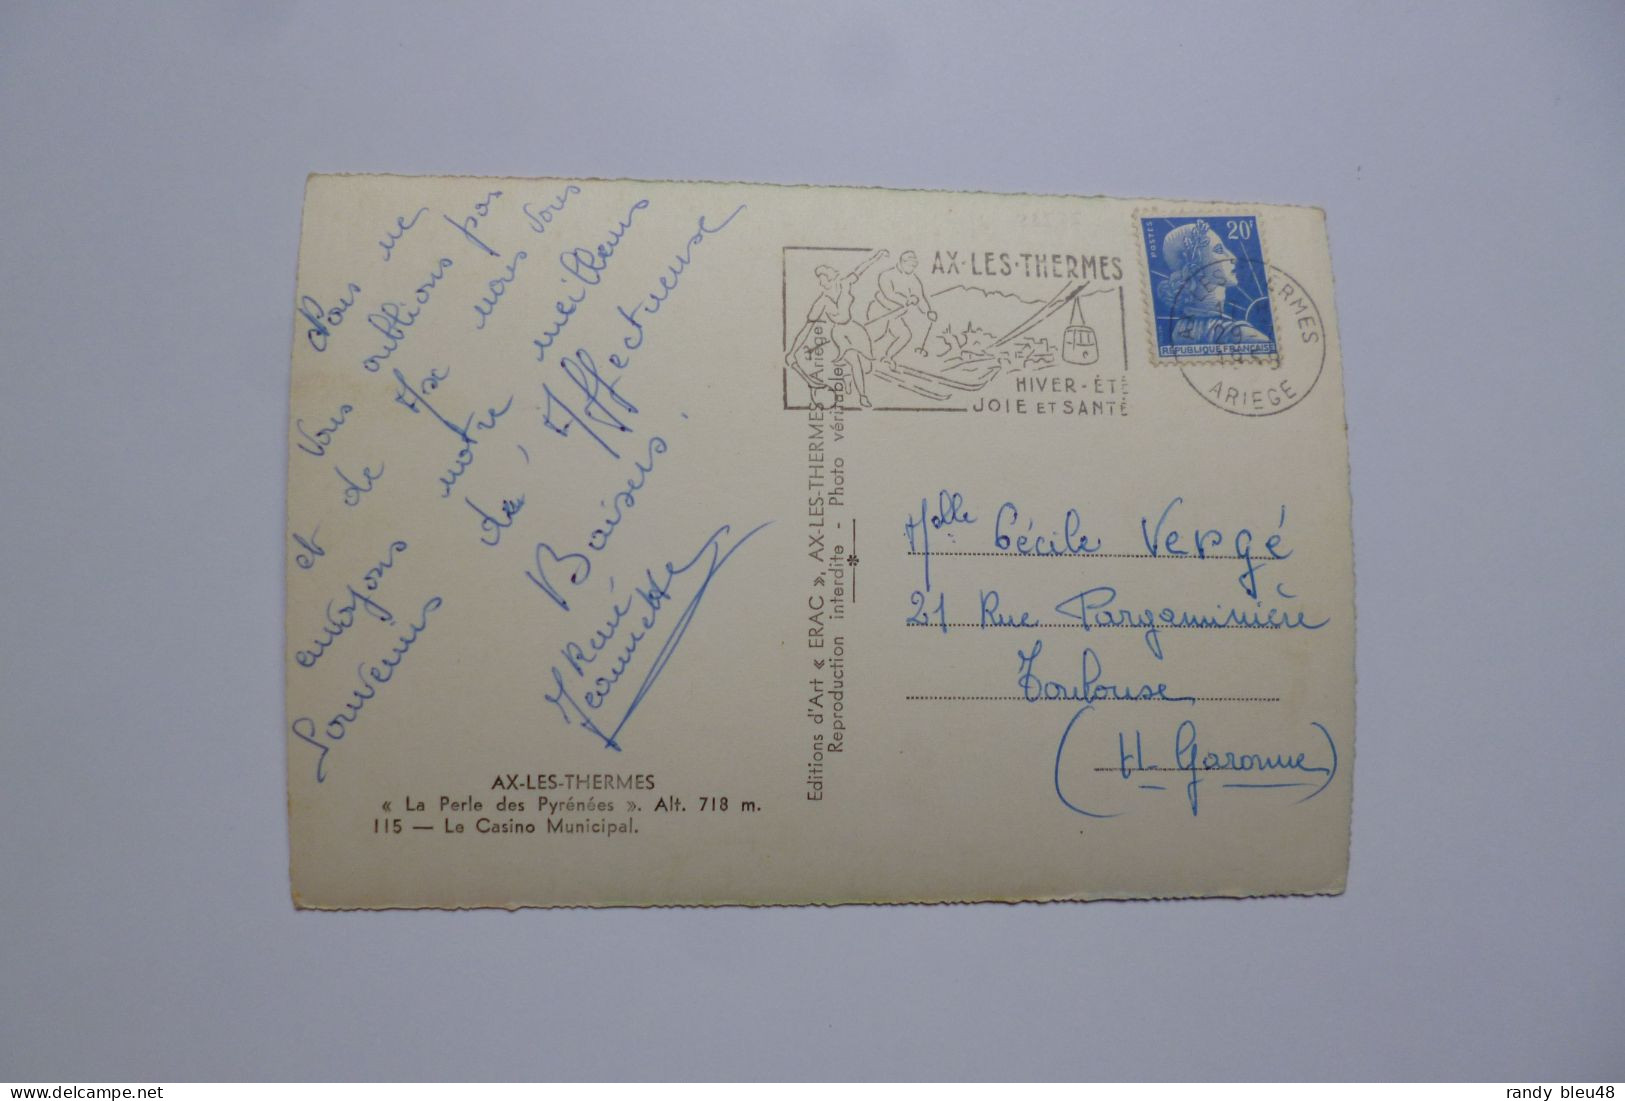 Nous ne
vous oublions pas
et de Ax nous vous
envoyons notre meilleurs
Souvenirs
Affectueuse
Baisers.
René
Jeannette
AX-LES-THERMES
« La Perle des Pyrénées ». Alt. 718 m.
115 — Le Casino Municipal.
Editions d'Art « ERAC », AX-LES-THERMES (Ariège)
Reproduction interdite - Photo véritable
AX-LES-THERMES
HIVER - ÉTÉ
JOIE ET SANTÉ
POSTES
20F
REPUBLIQUE FRANÇAISE
THERMES
ARIEGE
Melle Cécile Vergé
21 Rue Pargaminière
Toulouse
(H- Garonne)
randy bleu48